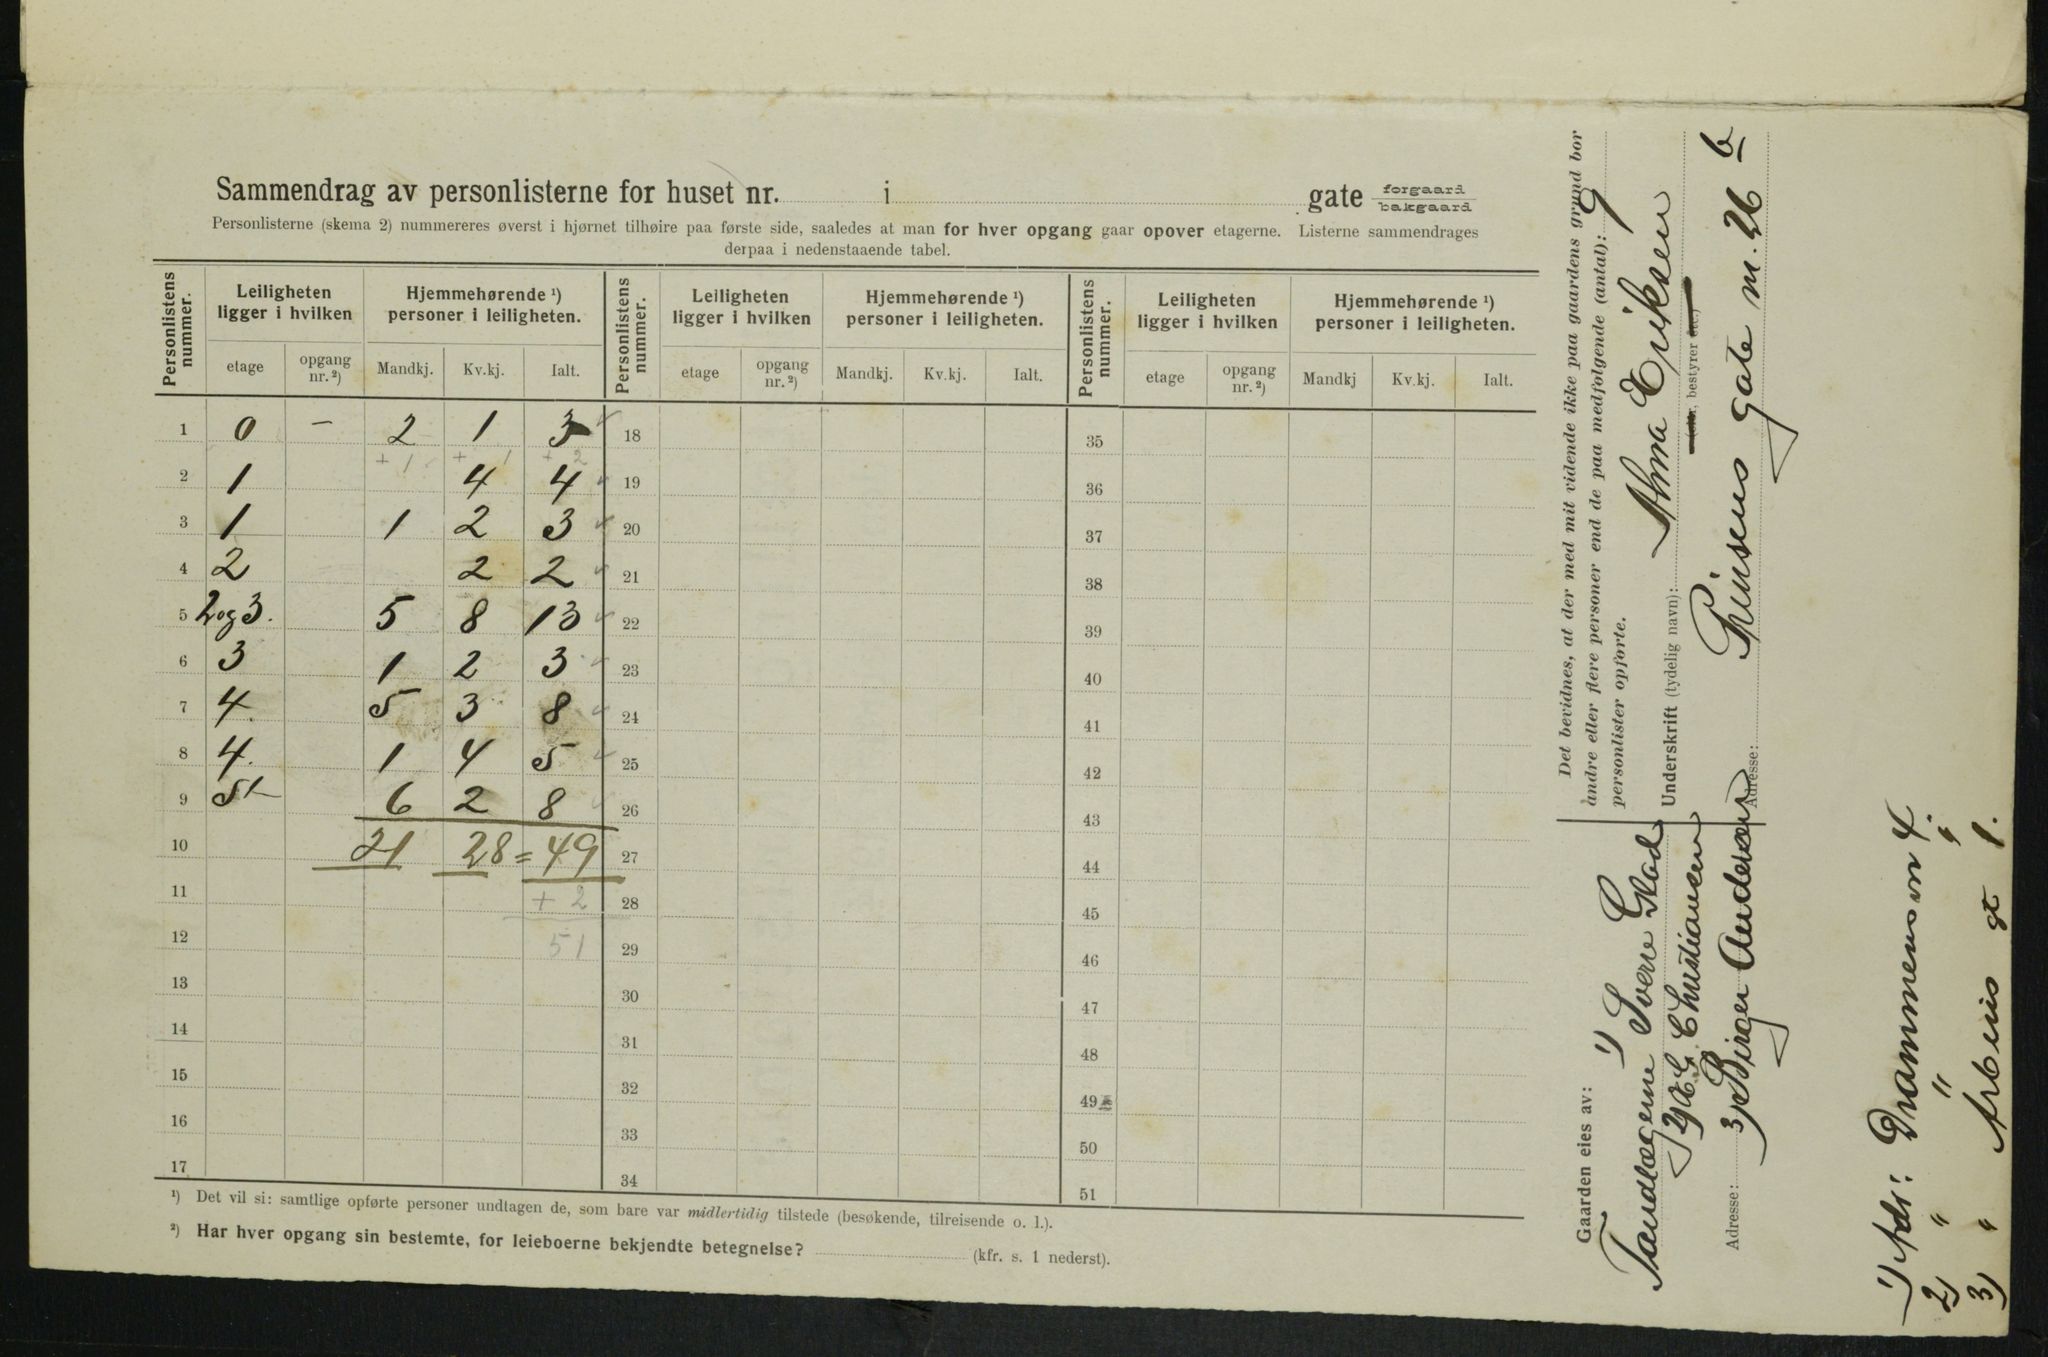 Sammendrag av personlisterne for huset nr. i gate forgaard bakgaard
Personlisterne (skema 2) nummereres øverst i hjørnet tilhøire paa første side, saaledes at man for hver opgang gaar opover etagerne. Listerne sammendrages
derpaa i nedenstaaende tabel.
Personlistens nummer. Leiligheten ligger i hvilken Hjemmehørende ¹) personer i leiligheten. Personlistens nummer. Leiligheten ligger i hvilken Hjemmehørende ¹) personer i leiligheten. Personlistens nummer. Leiligheten ligger i hvilken Hjemmehørende ¹) personer i leiligheten.
etage opgang nr. ²) Mandkj. Kv.kj. Ialt. etage opgang nr. ²) Mandkj. Kv.kj. Ialt. etage opgang nr. ²) Mandkj Kv.kj. Ialt.
1 0 – 2 1 3 18 35
+ 1 + 1 + 2
2 1 4 4 19 36
3 1 1 2 3 20 37
4 2 2 2 21 38
5 2 og 3. 5 8 13 22 39
6 3 1 2 3 23 40
7 4. 5 3 8 24 41
8 4. 1 4 5 25 42
9 5t 6 2 8 26 43
10 21 28 = 49 27 44
11 + 2 28 45
12 51 29 46
13 30 47
14 31 48
15 32 49
16 33 50
17 34 51
¹) Det vil si: samtlige opførte personer undtagen de, som bare var midlertidig tilstede (besøkende, tilreisende o. l.).
²) Har hver opgang sin bestemte, for leieboerne bekjendte betegnelse? (kfr. s. 1 nederst).
Det bevidnes, at der med mit vidende ikke paa gaardens grund bor
andre eller flere personer end de paa medfølgende (antal): 9
personlister opførte.
Underskrift (tydelig navn): Alma Eriksen
bestyrer
Adresse: Prinsens gate nr. 26 b
Gaarden eies av: 1)
Tandlægerne Sverre Glad
2) Chr. Christiansen
3) Birger Andersen
Adresse:
1) Adr: Drammensvn 4.
2) " " "
3) " Arbiens gt 1.